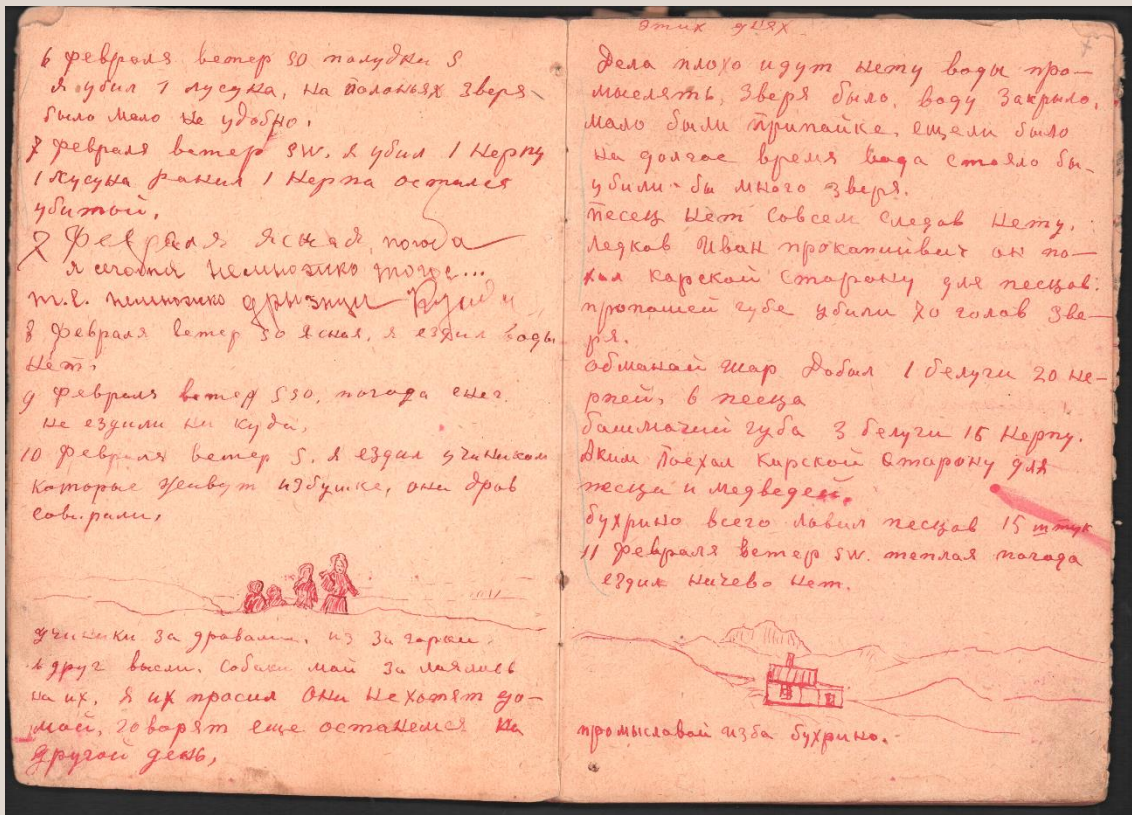 6 февраля ветер SO полудни S
я убил 1 лусука, на полоньях зверя
было мало не удобно.
7 февраля ветер SW. я убил 1 нерпу
1 лусука ранил 1 нерпа остался
убитой.
7 Февраля ясная погода
я сегодня немножко того...
т.е. немножко
8 февраля ветер SO ясная, я ездил воды
нет.
9 февраля ветер SSO, погода снег.
не ездили ни куда.
10 февраля ветер S. я ездил учиником
которые живут избушке, они дров
собирали,
учиники за дровами, из за горки.
вдруг высли. собаки мои за лаялись
на их, я их просил они не хотят до-
мой, говорят еще останемся на
другой день,
этих днях
Дела плохо идут нету воды про-
мыслять, зверя было, воду закрыло,
мало были припайке, ещели было
на долгое время вода стояло бы
убили-бы много зверя.
песец нет совсем следов нету.
Ледков Иван прокапивич он по-
хал карской сторону для песцов.
пропашей губе убили 70 голов зве-
ря.
обманай шар добыл 1 белуги 20 не-
рпей, 6 песца
башмачий губа 3 белуги 15 нерпу.
Аким поехал карской сторону для
песца и медведей.
бухрино всего ловил песцов 15 штук
11 февраля ветер SW. теплая погода
ездил ничево нет.
промысловой изба бухрино.